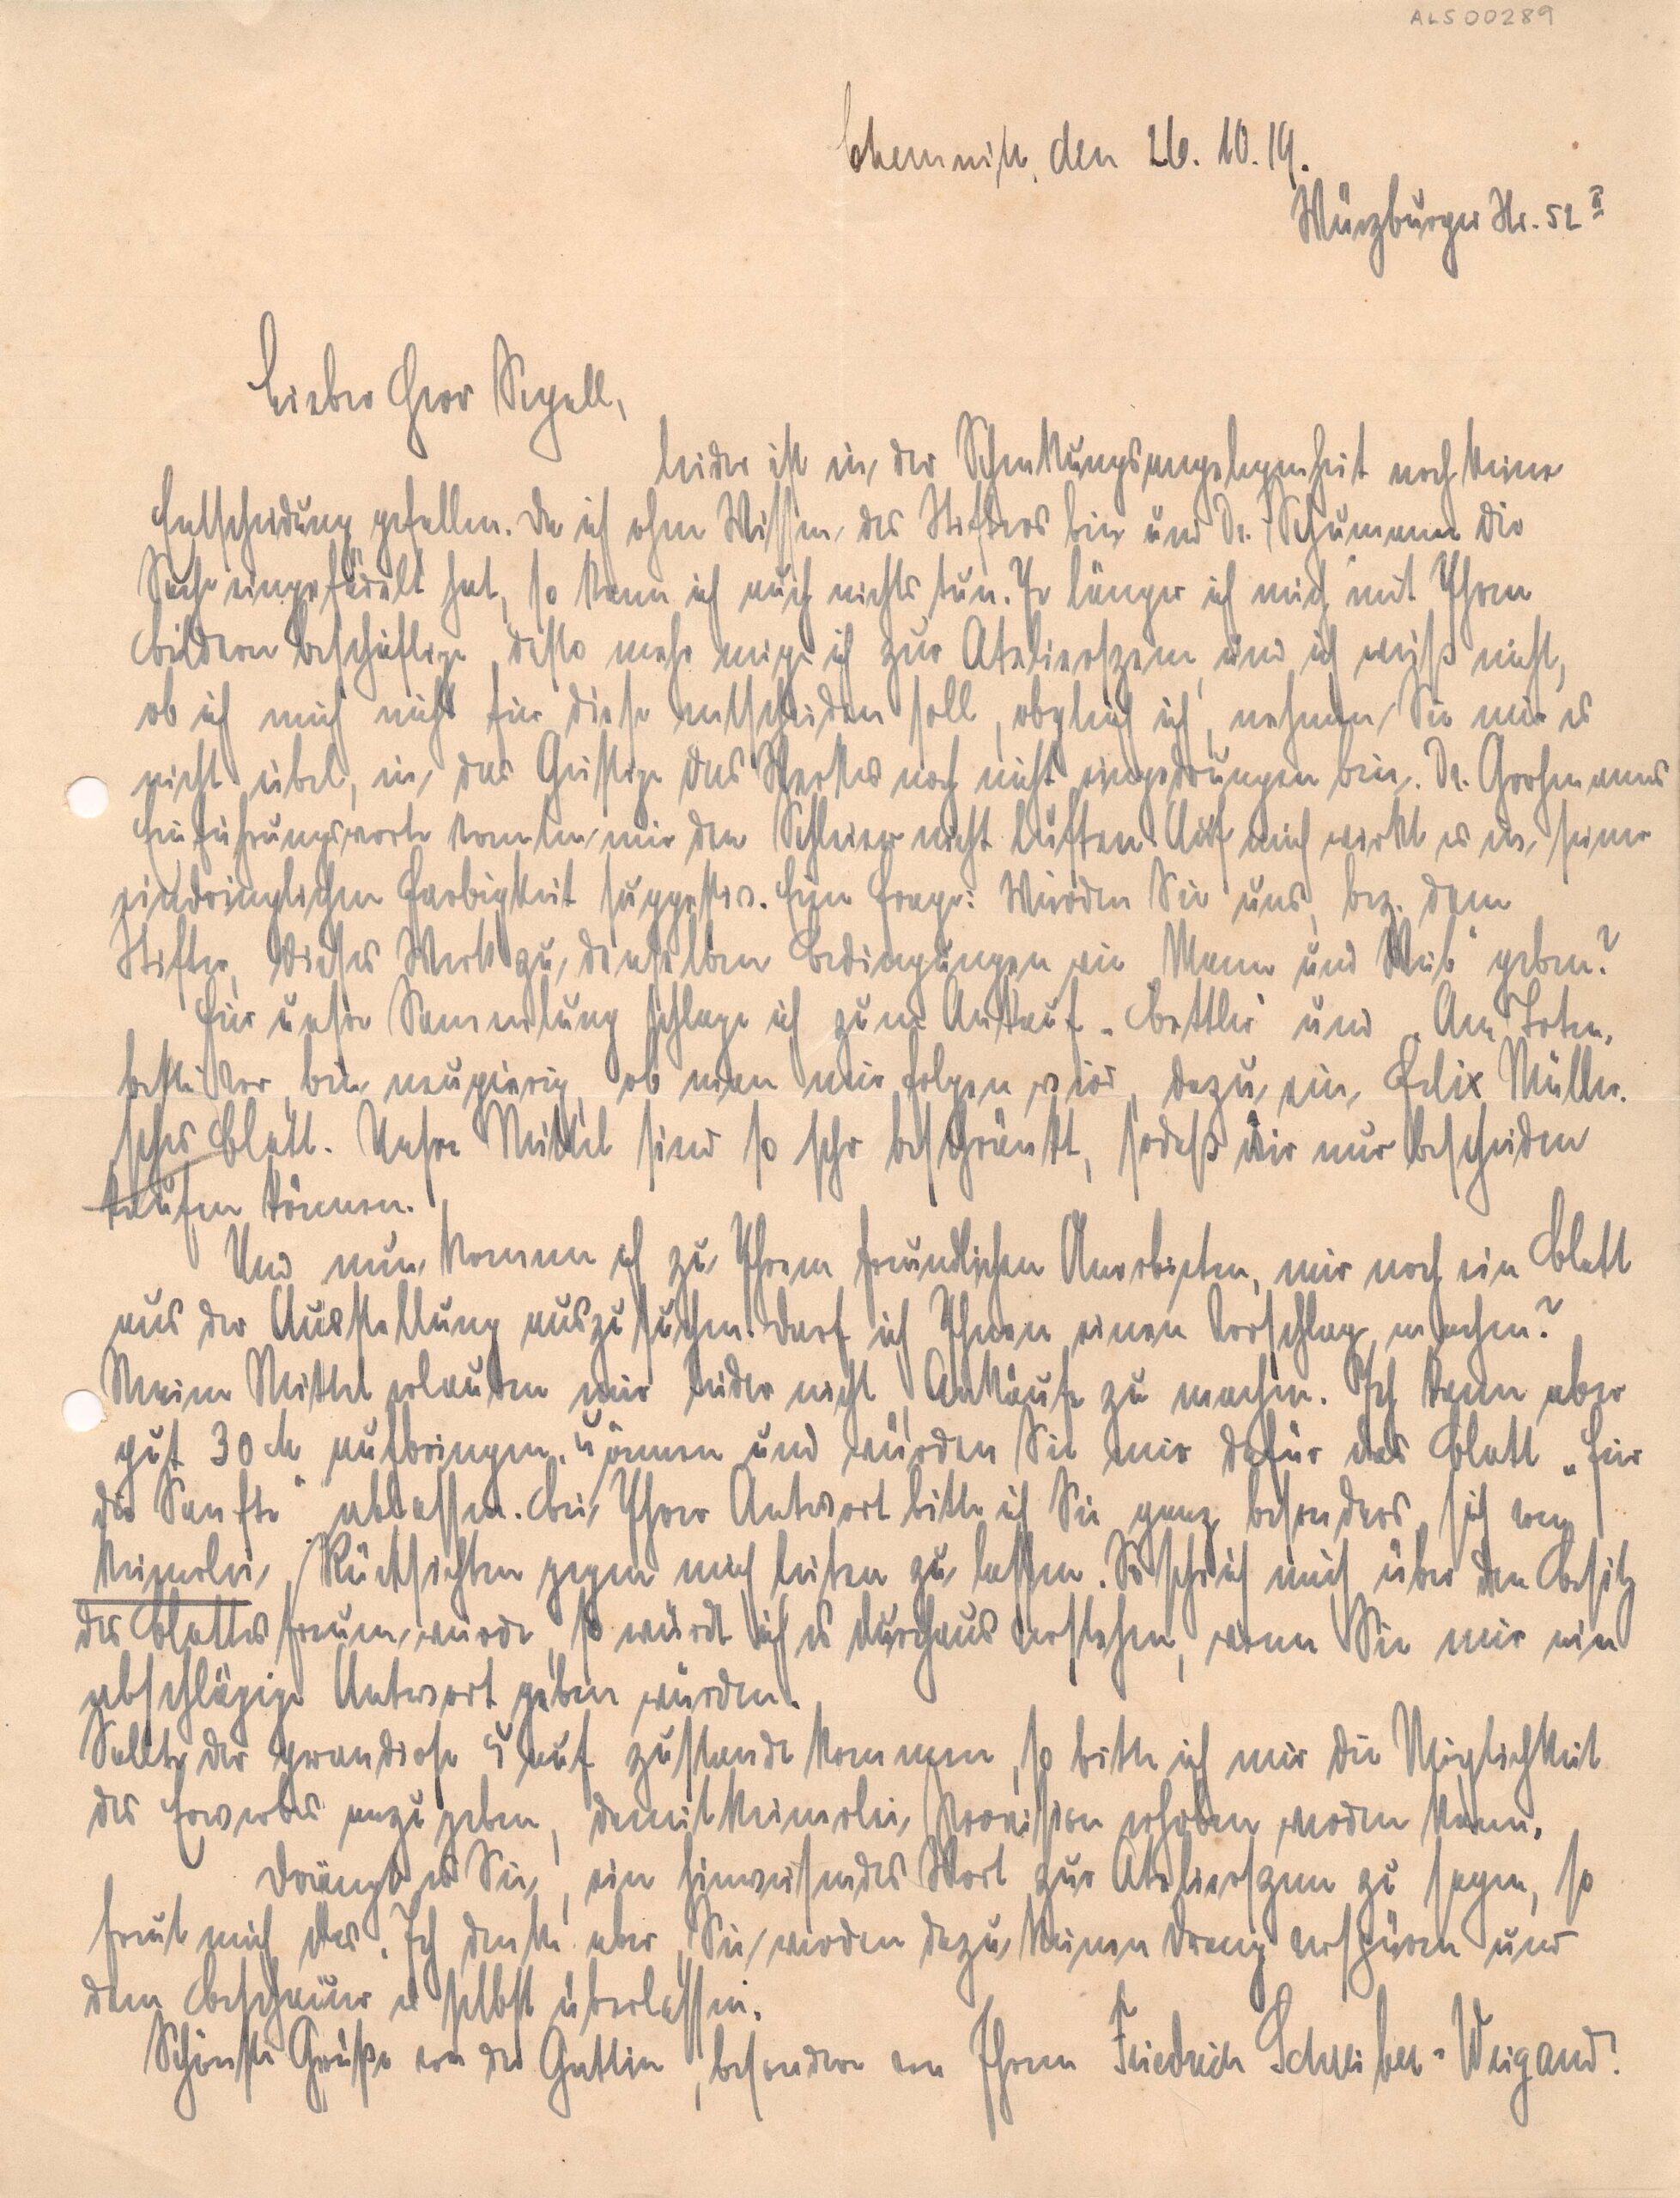 ALS 00289
Chemnitz, den 26. 10. 19.
Würzburger Str. 52 II
Lieber Herr Segall,
leider ist in der Schenkungsangelegenheit noch keine
Entscheidung gefallen. Da ich ohne Wissen des Stifters bin und Dr. Schumann die
Sache eingefädelt hat, so kann ich auch nichts tun. Je länger ich mich mit Ihren
Bildern beschäftige, desto mehr neige ich zur Atelierszene, und ich weiß nicht,
ob ich mich nicht für diese entscheiden soll, obgleich ich, nehmen Sie mir es
nicht übel, in das Geistige des Werkes noch nicht eingedrungen bin. Dr. Grohmanns
Einführungsworte konnten mir den Schleier nicht lüften. Auf mich wirkt es in seiner
eindringlichen Farbigkeit suggestiv. Eine Frage: Würden Sie uns, bez. dem
Stifter, dieses Werk zu denselben Bedingungen wie „Mann und Weib" geben?
Für unsre Sammlung schlage ich zum Ankauf „Bettler" und „Am Toten-
bette" vor, bin neugierig, ob man mir folgen wird, dazu ein Felix Müller-
sches Blatt. Unsre Mittel sind so sehr beschränkt, sodaß wir nur bescheiden
kaufen können.
Und nun komme ich zu Ihrem freundlichen Anerbieten, mir noch ein Blatt
aus der Ausstellung auszusuchen. Darf ich Ihnen einen Vorschlag machen?
Meine Mittel erlauben mir leider nicht, Ankäufe zu machen. Ich kann aber
gut 30 M aufbringen. Können und würden Sie mir dafür das Blatt „Für
die Sanfte" ablassen. Bei Ihrer Antwort bitte ich Sie ganz besonders, sich von
keinerlei Rücksichten gegen mich leiten zu lassen. So sehr ich mich über den Besitz
des Blattes freuen würde, so würde ich es durchaus verstehen, wenn Sie mir eine
abschlägige Antwort geben würden.
Sollte der grandiose Kauf zustande kommen, so bitte ich mir die Möglichkeit
des Erwerbes anzugeben, damit keinerlei Provision erhoben werden kann.
Drängt es Sie, ein hinweisendes Wort zur Atelierszene zu sagen, so
freut mich das. Ich denke aber, Sie werden dazu keinen Drang verspüren und
dem Beschauer es selbst überlassen.
Schönste Grüße von der Gattin, besonders von Ihrem Friedrich Schreiber-Weigand.